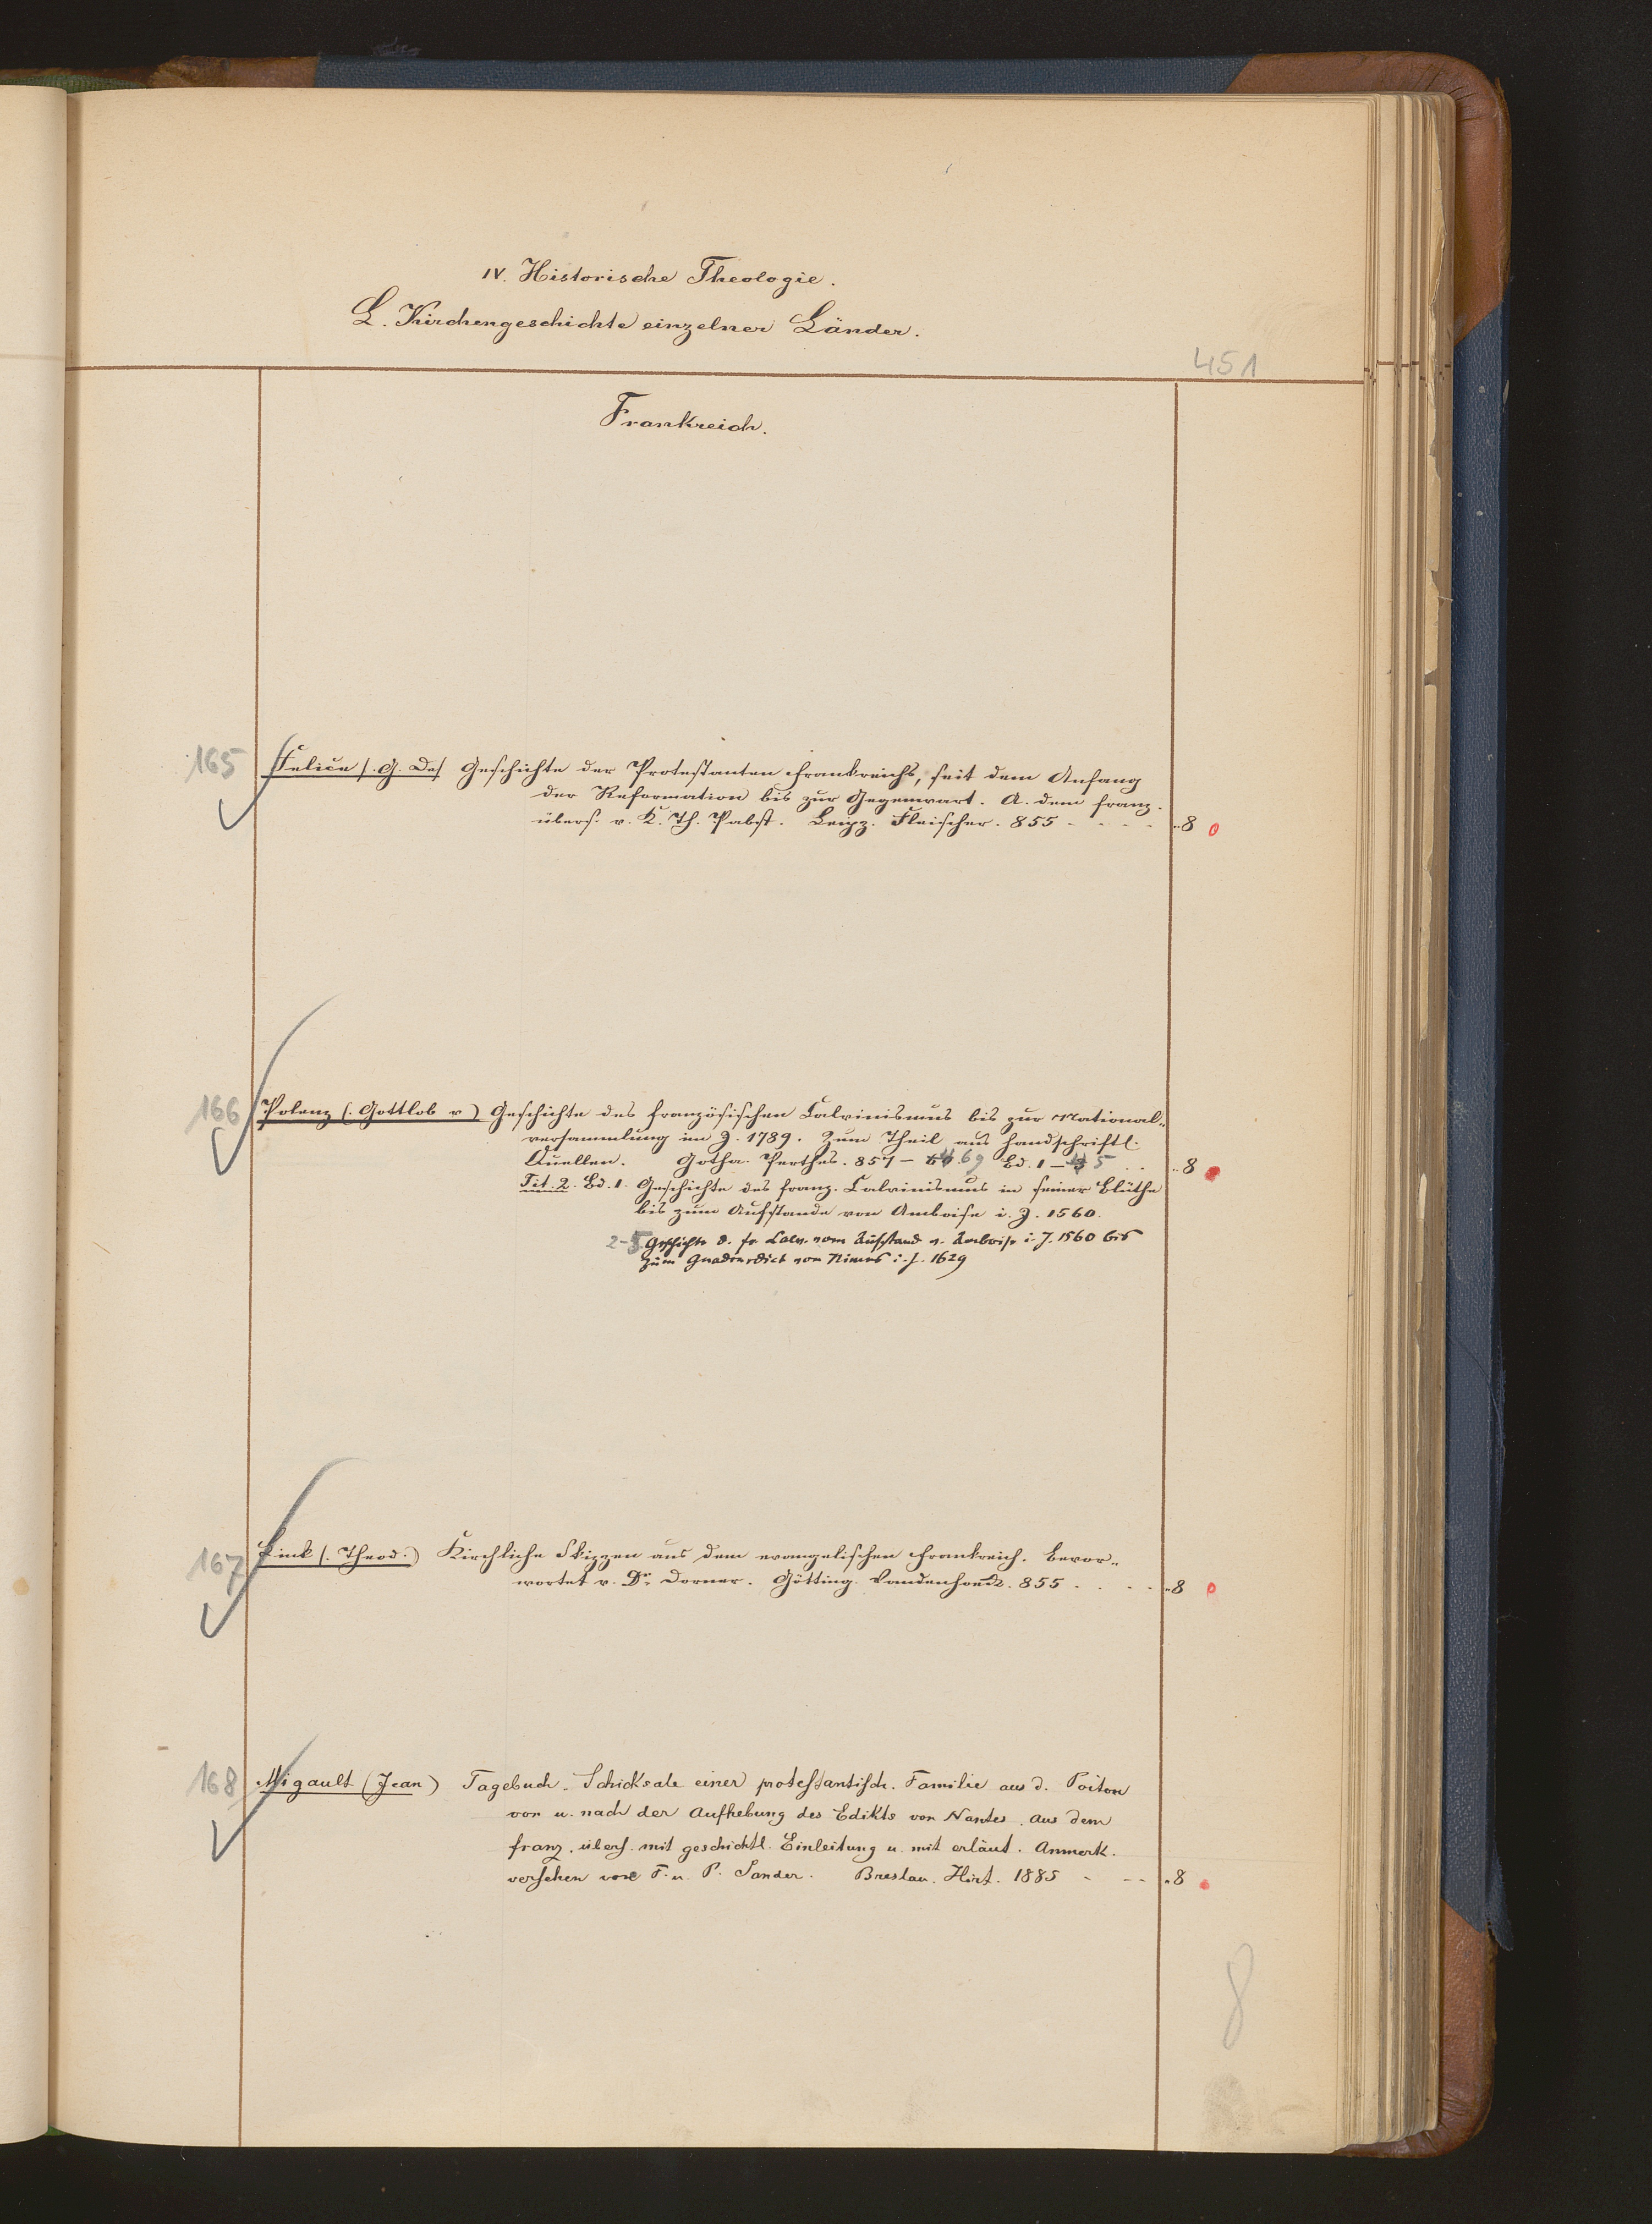 IV. Historische Theologie.
L. Kirchengeschichte einzelner Länder.
451
Frankreich.
165
Felice (. G. De) Geschichte der Protestanten Frankreichs, seit dem Anfang
der Reformation bis zur Gegenwart. A. dem franz.
übers. v. K. Th. Pabst. Leipz. Fleischer. 855 - - - - „8
166
Polenz (. Gottlob v) Geschichte des französischen Calvinismus bis zur National-
versammlung im J. 1789. Zum Theil aus handschriftl.
Quellen. Gotha. Perthes. 857 - 69 Bd. 1 - 5 . . „8
Tit. 2. Bd. 1. Geschichte des franz. Calvinismus in seiner Blüthe
bis zum Aufstande von Amboise i. J. 1560.
2-5 Geschichte d. fr. Calv. vom Aufstand v. Amboise i. J. 1560 bis
zum Gnadenedict von Nimes i. J. 1629
167
Fink (. Theod.) Kirchliche Skizzen aus dem evangelischen Frankreich. Bevor-
wortet v. Dr. Dorner. Götting. Vandenhoeck. 855 . . . . „8
168
Migault (Jean) Tagebuch. Schicksale einer protestantisch. Familie aus d. Poitou
vor u. nach der Aufhebung des Edikts von Nantes. Aus dem
franz. übers. mit geschichtl. Einleitung u. mit erläut. Anmerk.
versehen von F. u. P. Sander. Breslau. Hirt. 1885 - - - „8
8